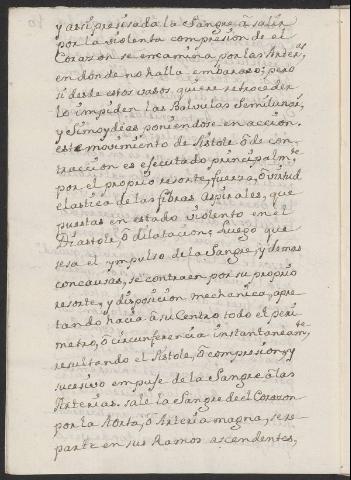 y assi presisada la Sangre â salir
por la violenta compresion de el
Corazon se encamina por las Arterĩs,
en donde no halla embarazo; pero
si desde estos vasos, quiere retroceder
lo impiden las Balvulas Semilunãs,
y Simoydẽas poniendose en acción.
este movimiento de Sistole õ de con-
traccion es ejecutado principalm.te
por el proprio resorte, fuerza, õ virtud
elastica de las fibras espirales, que
puestas en estado violento en el
Diastole, õ dilatacion, luego que
sesa el ympulso de la Sangre, y demas
concausas, se contraen por su proprio
resorte, y disposicion mechanica, apre-
tando hacia â su Centro todo el peri
metro, õ circunferencia instantaneam.te
resultando el Sistole, õ compresion, y
sucesivo empuje de la Sangre â las
Arterias. sale la Sangre de el Corazon
por la Aorta, õ Arteria magna, se re-
parte en sus Ramos ascendentes,